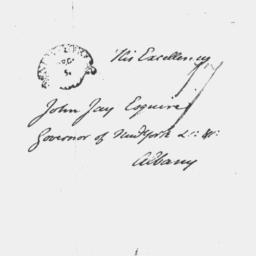 His Excellency
John Jay Esquire
Governor of New York &c: &c:
Albany